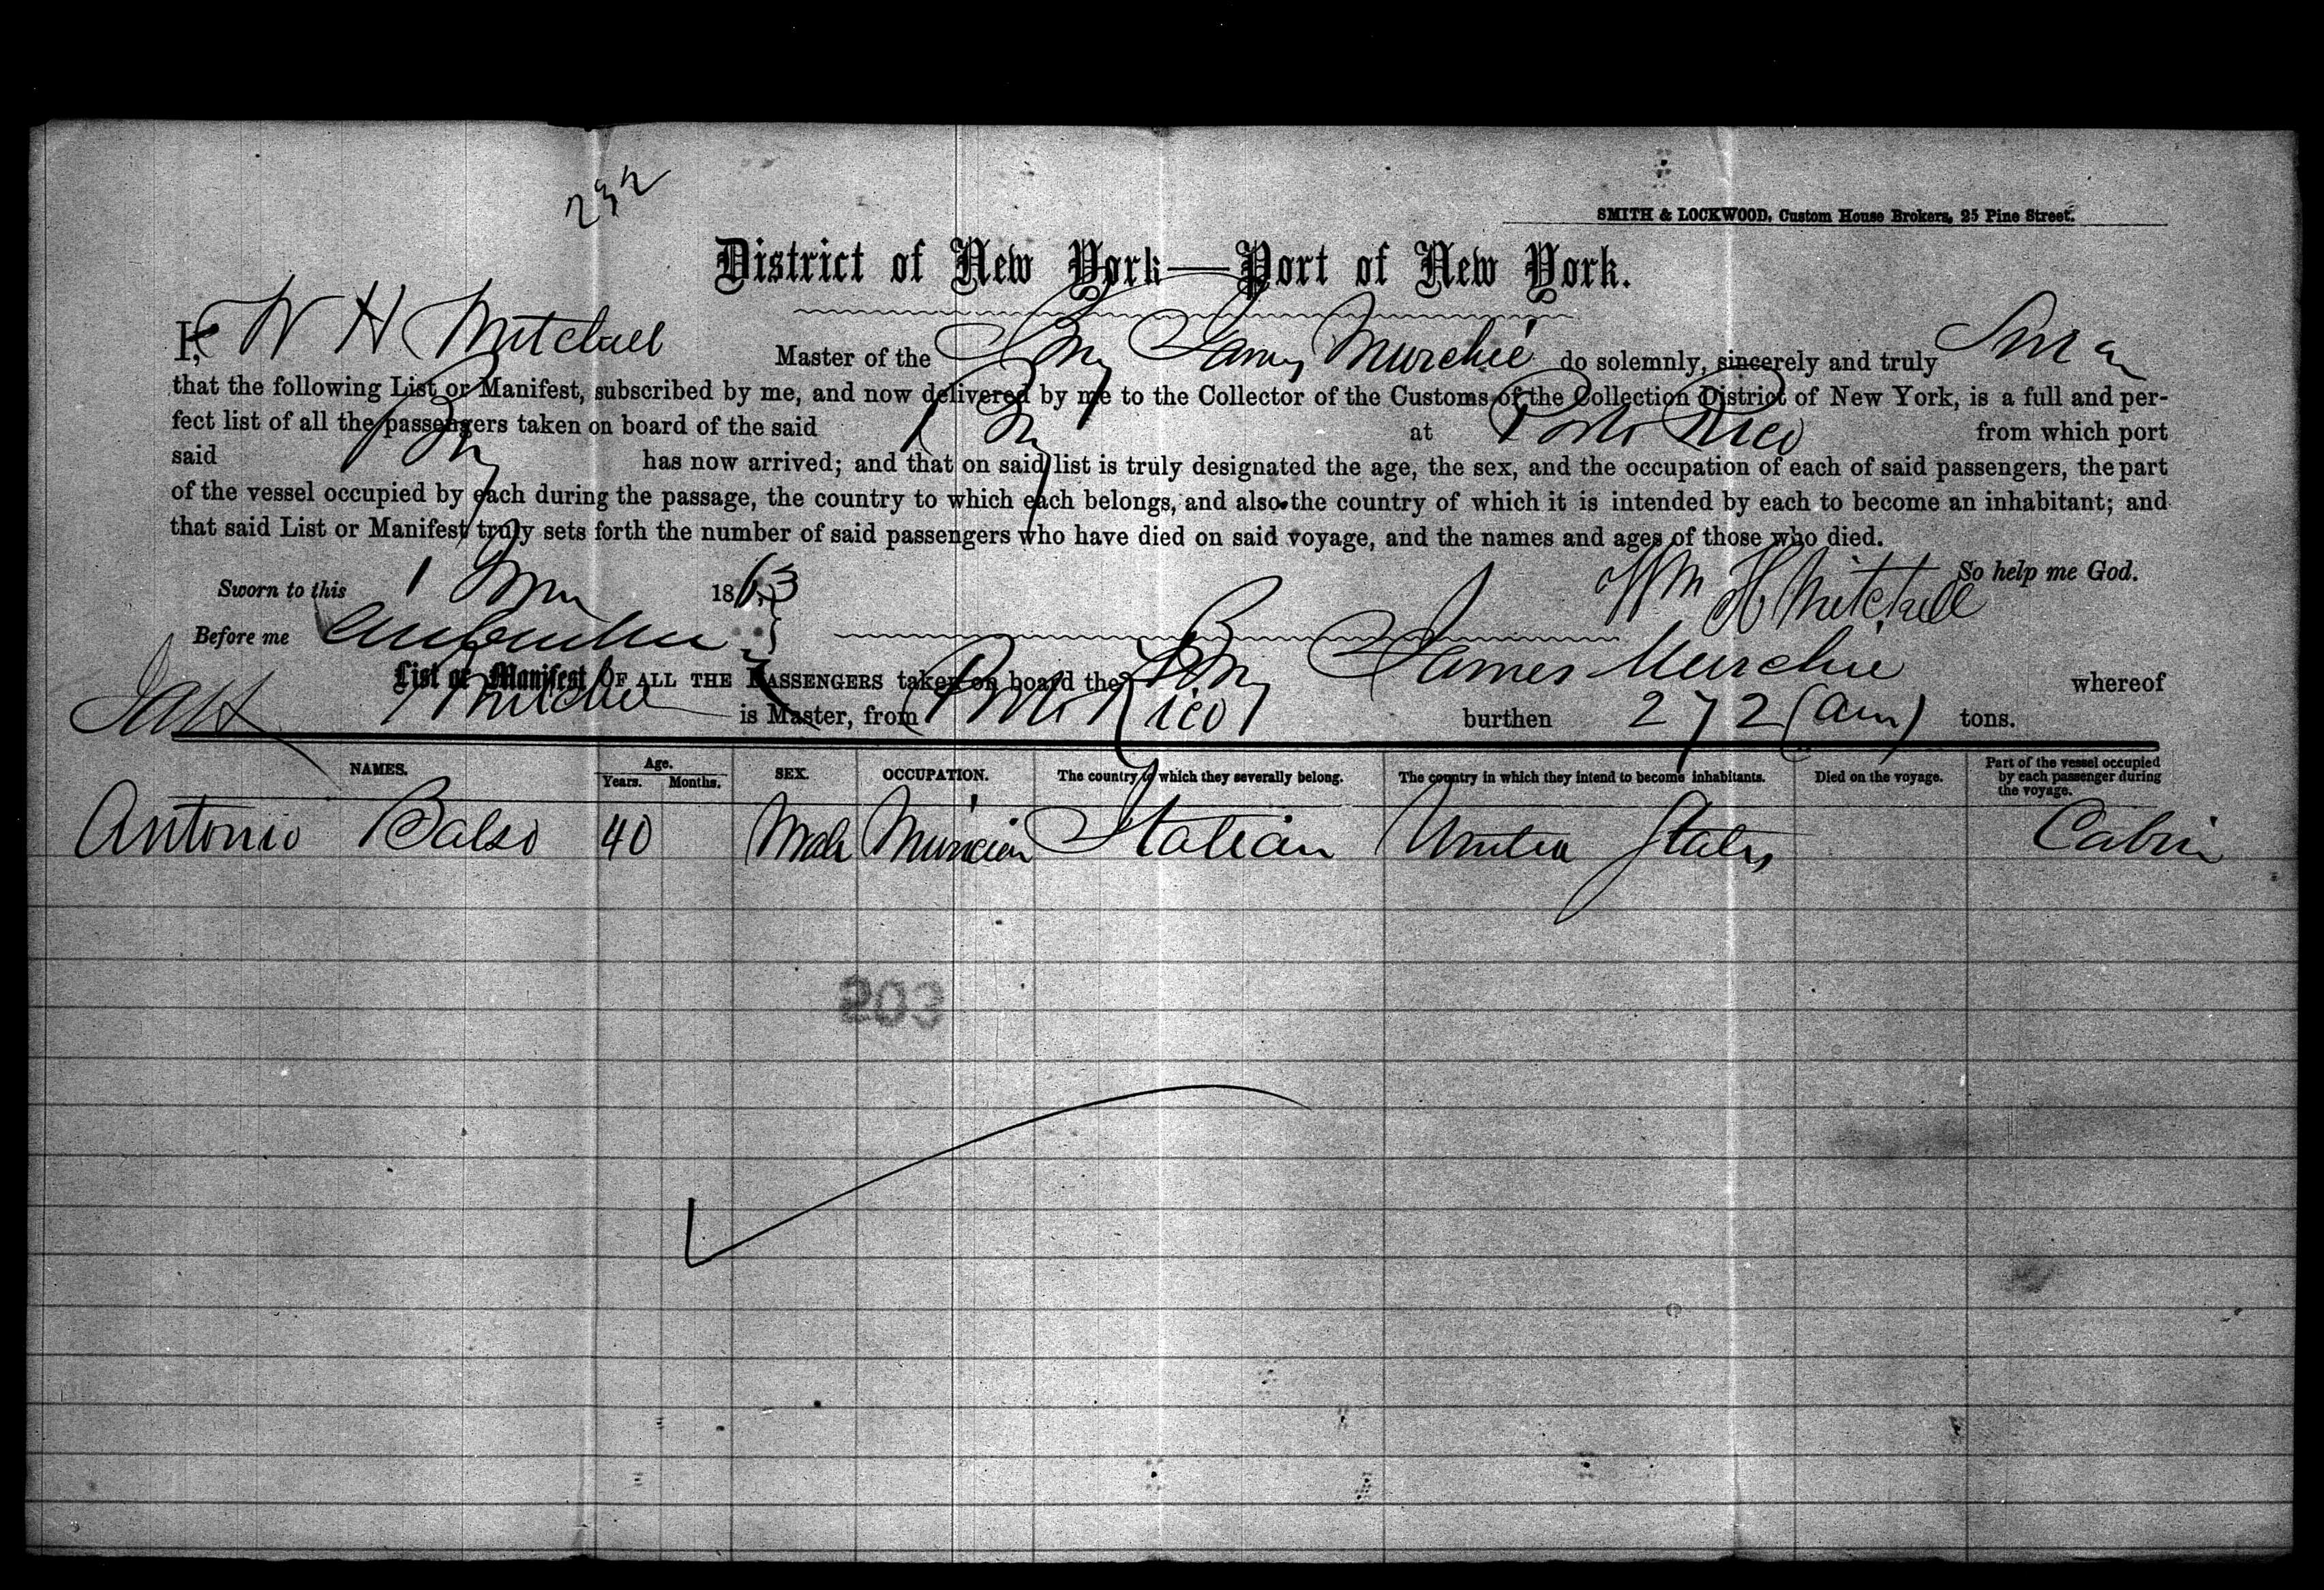 232
SMITH & LOCKWOOD, Custom House Brokers, 25 Pine Street.
District of New York—Port of New York.
I, W H Mitchell Master of the Brig James Murchie do solemnly, sincerely and truly Swear
that the following List or Manifest, subscribed by me, and now delivered by me to the Collector of the Customs of the Collection District of New York, is a full and per-
fect list of all the passengers taken on board of the said Brig at Porto Rico from which port
said Brig has now arrived; and that on said list is truly designated the age, the sex, and the occupation of each of said passengers, the part
of the vessel occupied by each during the passage, the country to which each belongs, and also the country of which it is intended by each to become an inhabitant; and
that said List or Manifest truly sets forth the number of said passengers who have died on said voyage, and the names and ages of those who died.
Sworn to this 1 1863 Wm H Mitchell So help me God.
Before me
List or Manifest OF ALL THE PASSENGERS taken on board the Brig James Murchie whereof
Mitchell is Master, from Porto Rico burthen 272 (Am) tons.
NAMES. Age. Years. Months. SEX. OCCUPATION. The country to which they severally belong. The country in which they intend to become inhabitants. Died on the voyage. Part of the vessel occupied by each passenger during the voyage.
Antonio Balso 40 Male Musician Italian United States Cabin
203